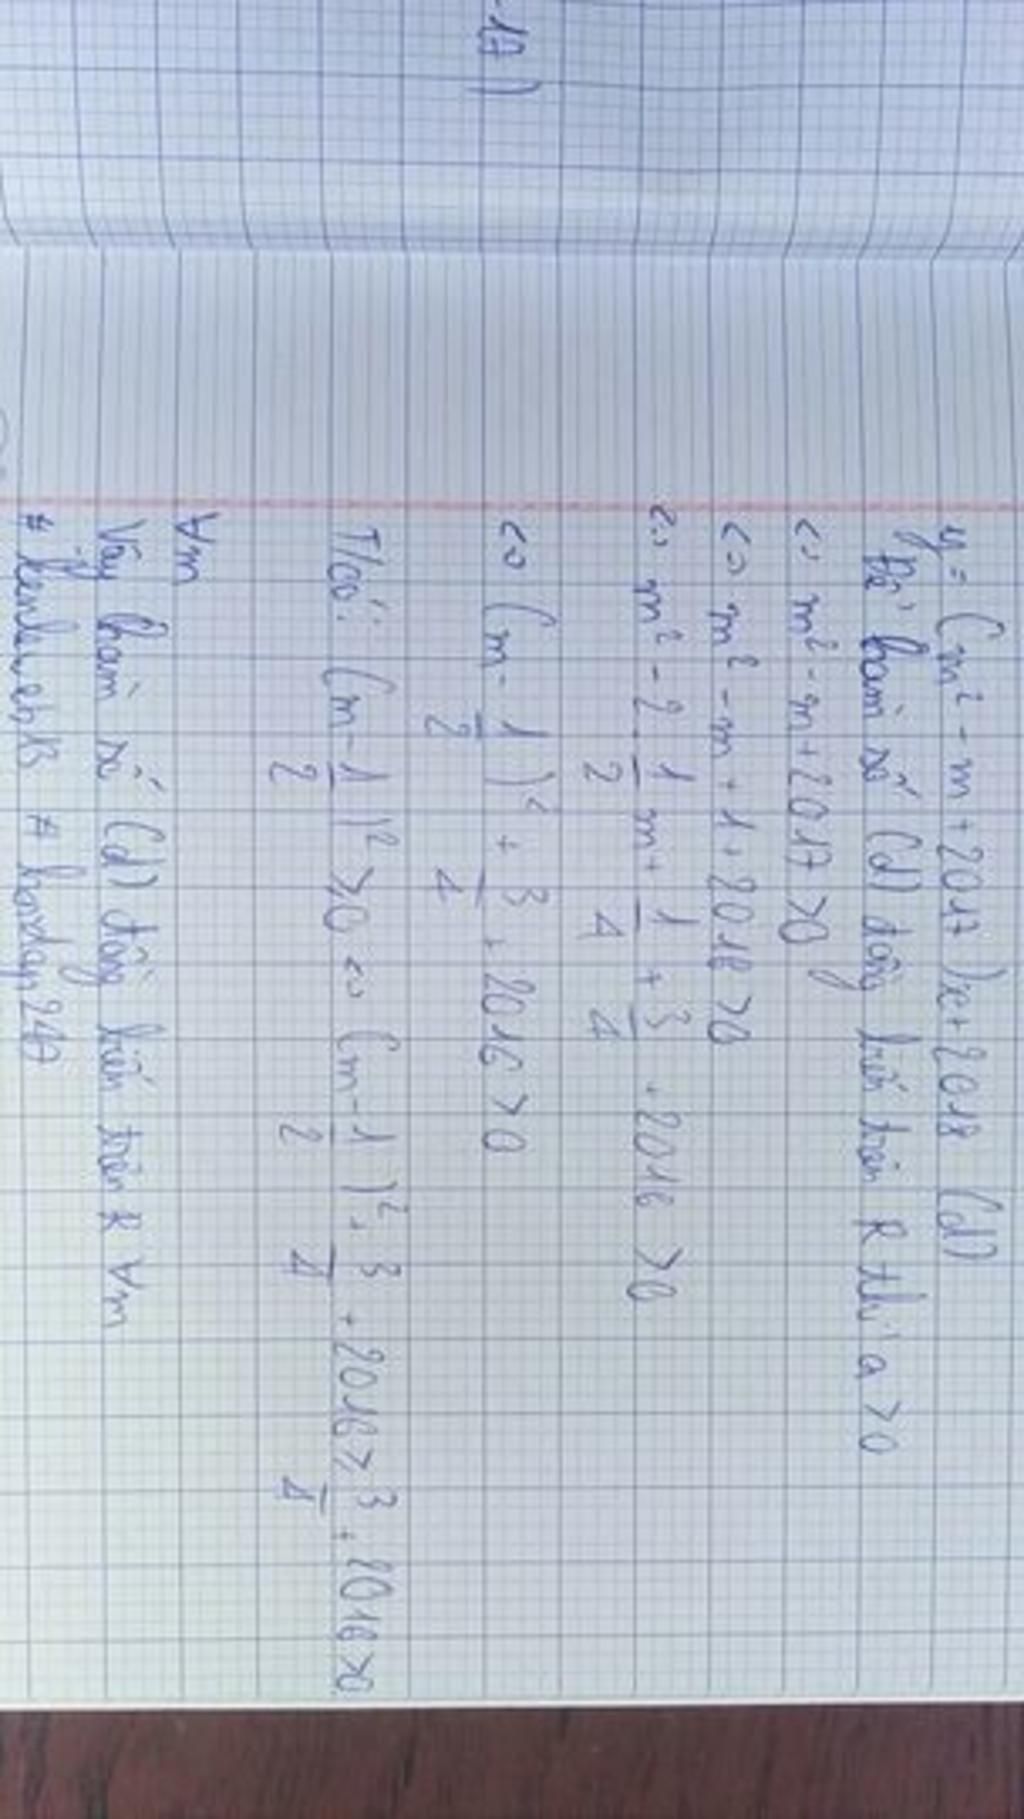 -17)
y = (m² - m + 2017)x + 2018 (d)
Để hàm số (d) đồng biến trên R thì a > 0
<=> m² - m + 2017 > 0
<=> m² - m + 1 + 2016 > 0
<=> m² - 2 . 1/2 m + 1/4 + 3/4 + 2016 > 0
<=> (m - 1/2)² + 3/4 + 2016 > 0
T/có: (m - 1/2)² ≥ 0 <=> (m - 1/2)² + 3/4 + 2016 ≥ 3/4 + 2016 > 0
∀m
Vậy hàm số (d) đồng biến trên R ∀m
# hoidap247